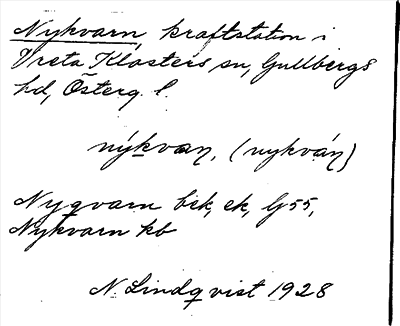 Nykvarn, kraftstation i
Vreta Klosters sn, Gullbergs
hd, Österg. l.
nýkvan, (nykván)
Nyqvarn bek, ek, G55,
Nykvarn kb
N. Lindqvist 1928